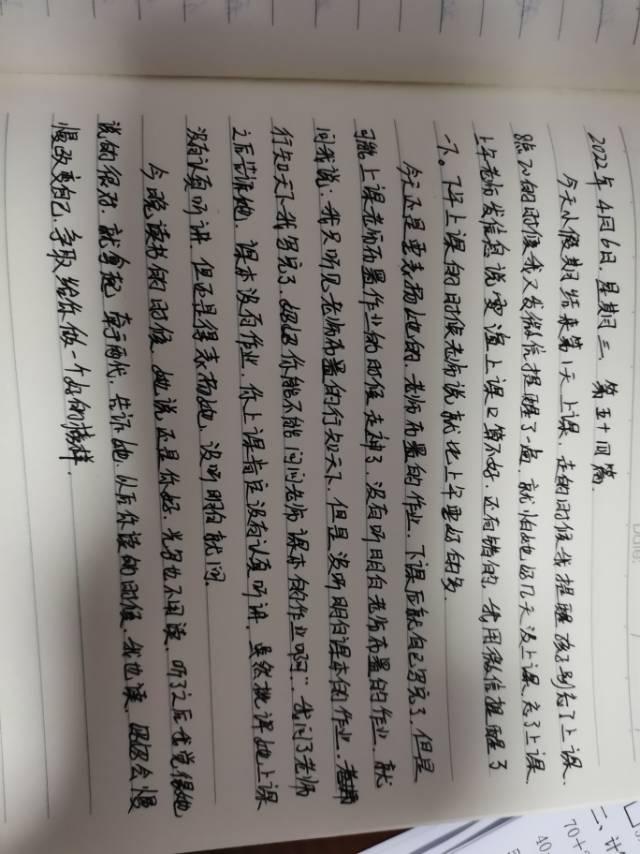 2022年4月6日.星期三 第五十四篇.
今天小假期结束第1天上课.走的时候我提醒孩子别忘了上课.
8点20的时候我又发微信提醒了一遍.就怕她好几天没上课.忘了上课.
上午老师发信息说变温上课口算不好.还有错的.我用微信提醒了
一下。下午上课的时候老师说就比上午要好的多.
今天还是要表扬她的.老师布置的作业.下课后就自己写完了.但是
可能上课老师布置作业的时候走神了.没有听明白老师布置的作业.就
问我说:我只听见老师布置的行知天下.但是没听明白课本的作业.
行知天下我写完了.妈妈你能不能问问老师课本的作业啊…我问了老师
之后告诉她.课本没有作业.你上课肯定没有认真听讲.虽然批评她上课
没有认真听讲.但还是得表扬她.没听明白就问.
今晚读书的时候.她说还是你好.光写也不用读.听了之后我觉得她
说的很对.就拿起.告诉她.以后你读的时候.我也读.妈妈会慢
慢改变自己.争取给你做一个好的榜样.
二、计
70+
40